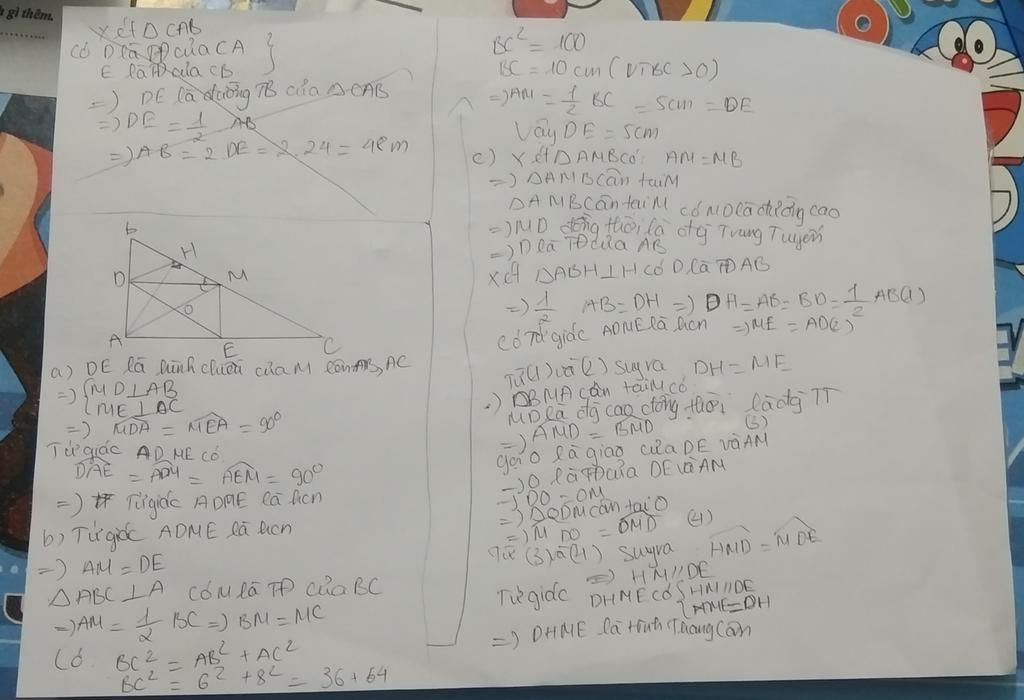 à gì thêm.
Xét Δ CAB
có D là TĐ của CA
E là TĐ của CB
=> DE là đường TB của ΔCAB
=> DE = 1/2 AB
=> AB = 2.DE = 2.24 = 48m
B
H
D
M
O
A
E
C
a) DE là hình chiếu của M lên AB, AC
=> { MD⊥AB
{ ME⊥AC
=> MDA = MEA = 90°
Tứ giác ADME có
DAE = ADM = AEM = 90°
=> Tứ giác ADME là hcn
b) Tứ giác ADME là hcn
=> AM = DE
ΔABC⊥A có M là TĐ của BC
=> AM = 1/2 BC => BM = MC
Có BC² = AB² + AC²
BC² = 6² + 8² = 36 + 64
BC² = 100
BC = 10 cm (vì BC > 0)
=> AM = 1/2 BC = 5cm = DE
Vậy DE = 5cm
c) Xét ΔAMB có: AM = MB
=> ΔAMB cân tại M
ΔAMB cân tại M có MD là đường cao
=> MD đồng thời là đg Trung Tuyến
=> D là TĐ của AB
Xét ΔABH⊥H có D là TĐ AB
=> 1/2 AB = DH => DH = AB = BD = 1/2 AB (1)
Có Tứ giác ADME là hcn => ME = AD (2)
Từ (1) và (2) suy ra DH = ME
.) ΔBMA cân tại M có
MD là đg cao đồng thời là đg TT
=> AMD = BMD (3)
gọi O là giao của DE và AM
=> O là TĐ của DE và AM
=> DO = OM
=> ΔODM cân tại O
=> MDO = OMD (4)
Từ (3) và (4) suy ra HMD = MDE
=> HM // DE
Tứ giác DHME có { HM // DE
{ ME = DH
=> DHME là hình thang cân